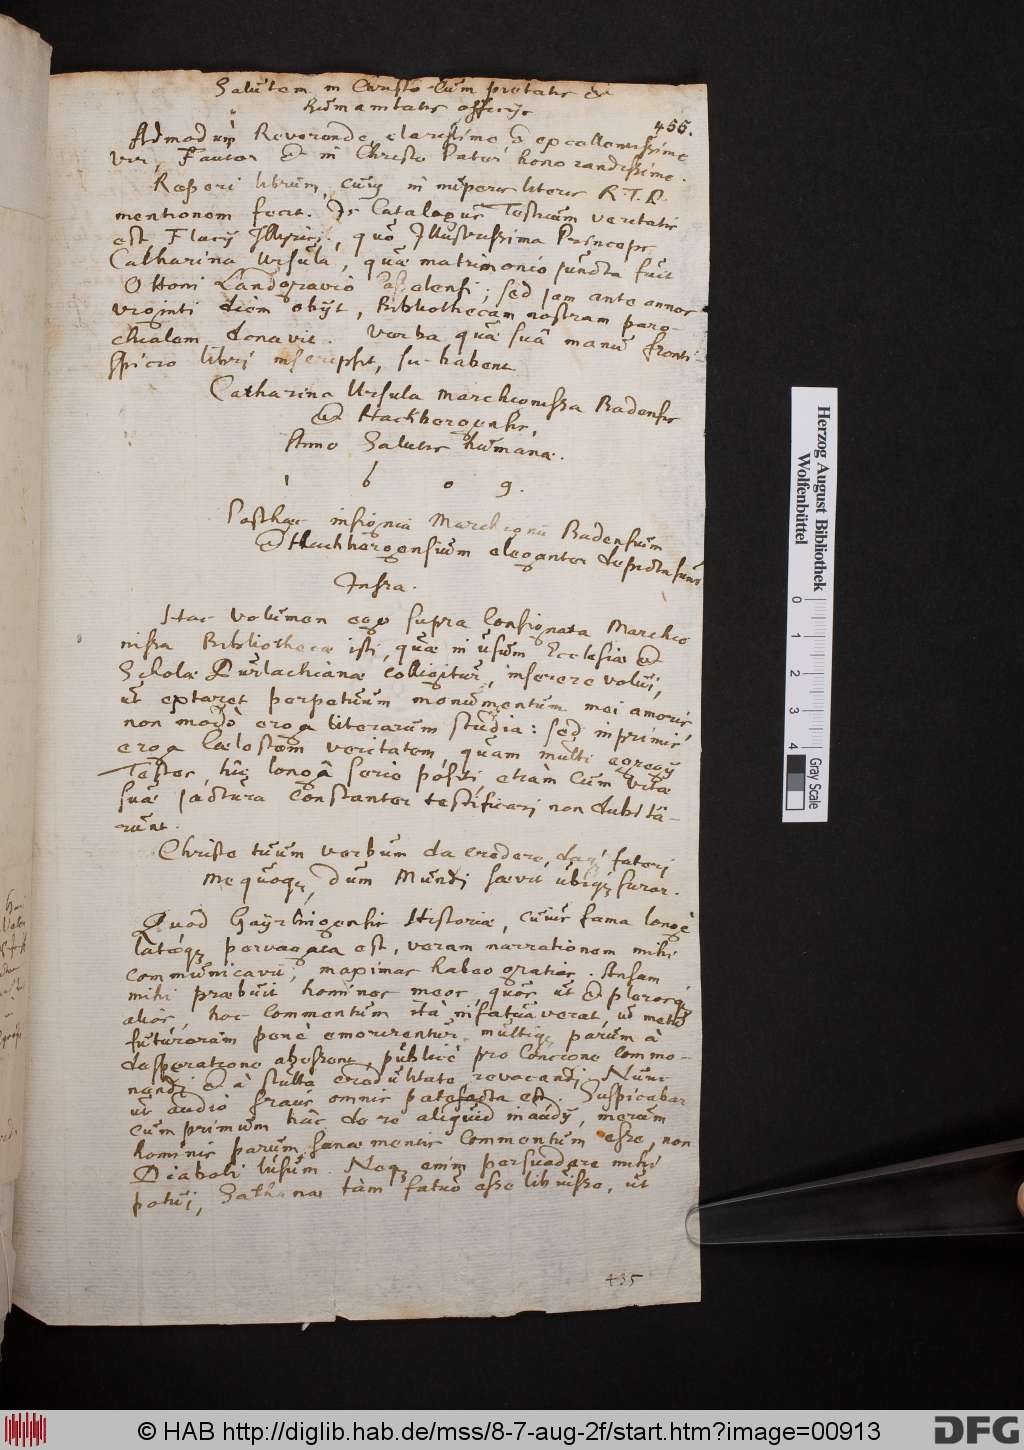 Salutem in Christo cum pietatis &
humanitatis officijs
455.
Admodum Reverende, clarissime & excellentissime
vir, Fautor & in Christo Pater honorandissime.
Reperi librum, cuius in nuperis literis R.T.D.
mentionem fecit. Is Catalogus Testium veritatis
est Flacij Illyrici, quo Illustrissima Princeps
Catharina Ursula, quæ matrimonio juncta fuit
Ottoni Landgravio Casselensi; sed jam ante annos
viginti diem obijt, Bibliothecam nostram paro-
chialem donavit. Verba quæ suâ manu fronti-
spicio libri inscripsit, su habent
Catharina Ursula Marchionissa Badensis
& Hachbergensis,
Anno Salutis humanæ.
1 6 0 9.
Posthac insignia Marchionū Badensium
& Hachbergensium eleganter depicta sunt
Infra.
Hac volumen ego supra consignata Marchio
nissa Bibliothecæ isti, quæ in usum Ecclesiæ &
Scholæ Durlachianæ colligitur, inserere volui,
ut extaret perpetuum monumentum mei amoris
non modò erga literarum studia: sed inprimis
erga cœlestem veritatem, quam multi egregij
Testes, hîc longâ serie positi, etiàm cum vitæ
suæ jacturâ constanter testificari non dubitâ-
runt.
Christe tuum verbum da credere, daq; fateri
Mequoq;, dum Mundi sævit ubiq; furor.
Quod Historiæ, cuius fama longè
latèq; pervagata est, veram narrationem mihi
communicavit, maximas habeo gratias. Ansam
mihi præbuit homines meos, quos ut & plerosq;
alios, hoc commentum ità infatuaverat, ut metu
futurorum penè emorerentur, multiq; parùm à
desperatione abessent, publicè pro concione commo-
nendi & à stulta credulitate revocandi. Nunc
ut audio fraus omnis patefacta est. Suspicabar
cum primum hâc de re aliquid inaudij, merum
hominis parum sanæ mentis commentum esse, non
Diaboli lusum. Neq; enim persuadere mihi
potui, Sathanæ tàm fatuo esse libuisse, ut
435
Herzog August Bibliothek
Wolfenbüttel
0
1
2
3
4
Gray Scale
© HAB http://diglib.hab.de/mss/8-7-aug-2f/start.htm?image=00913
DFG